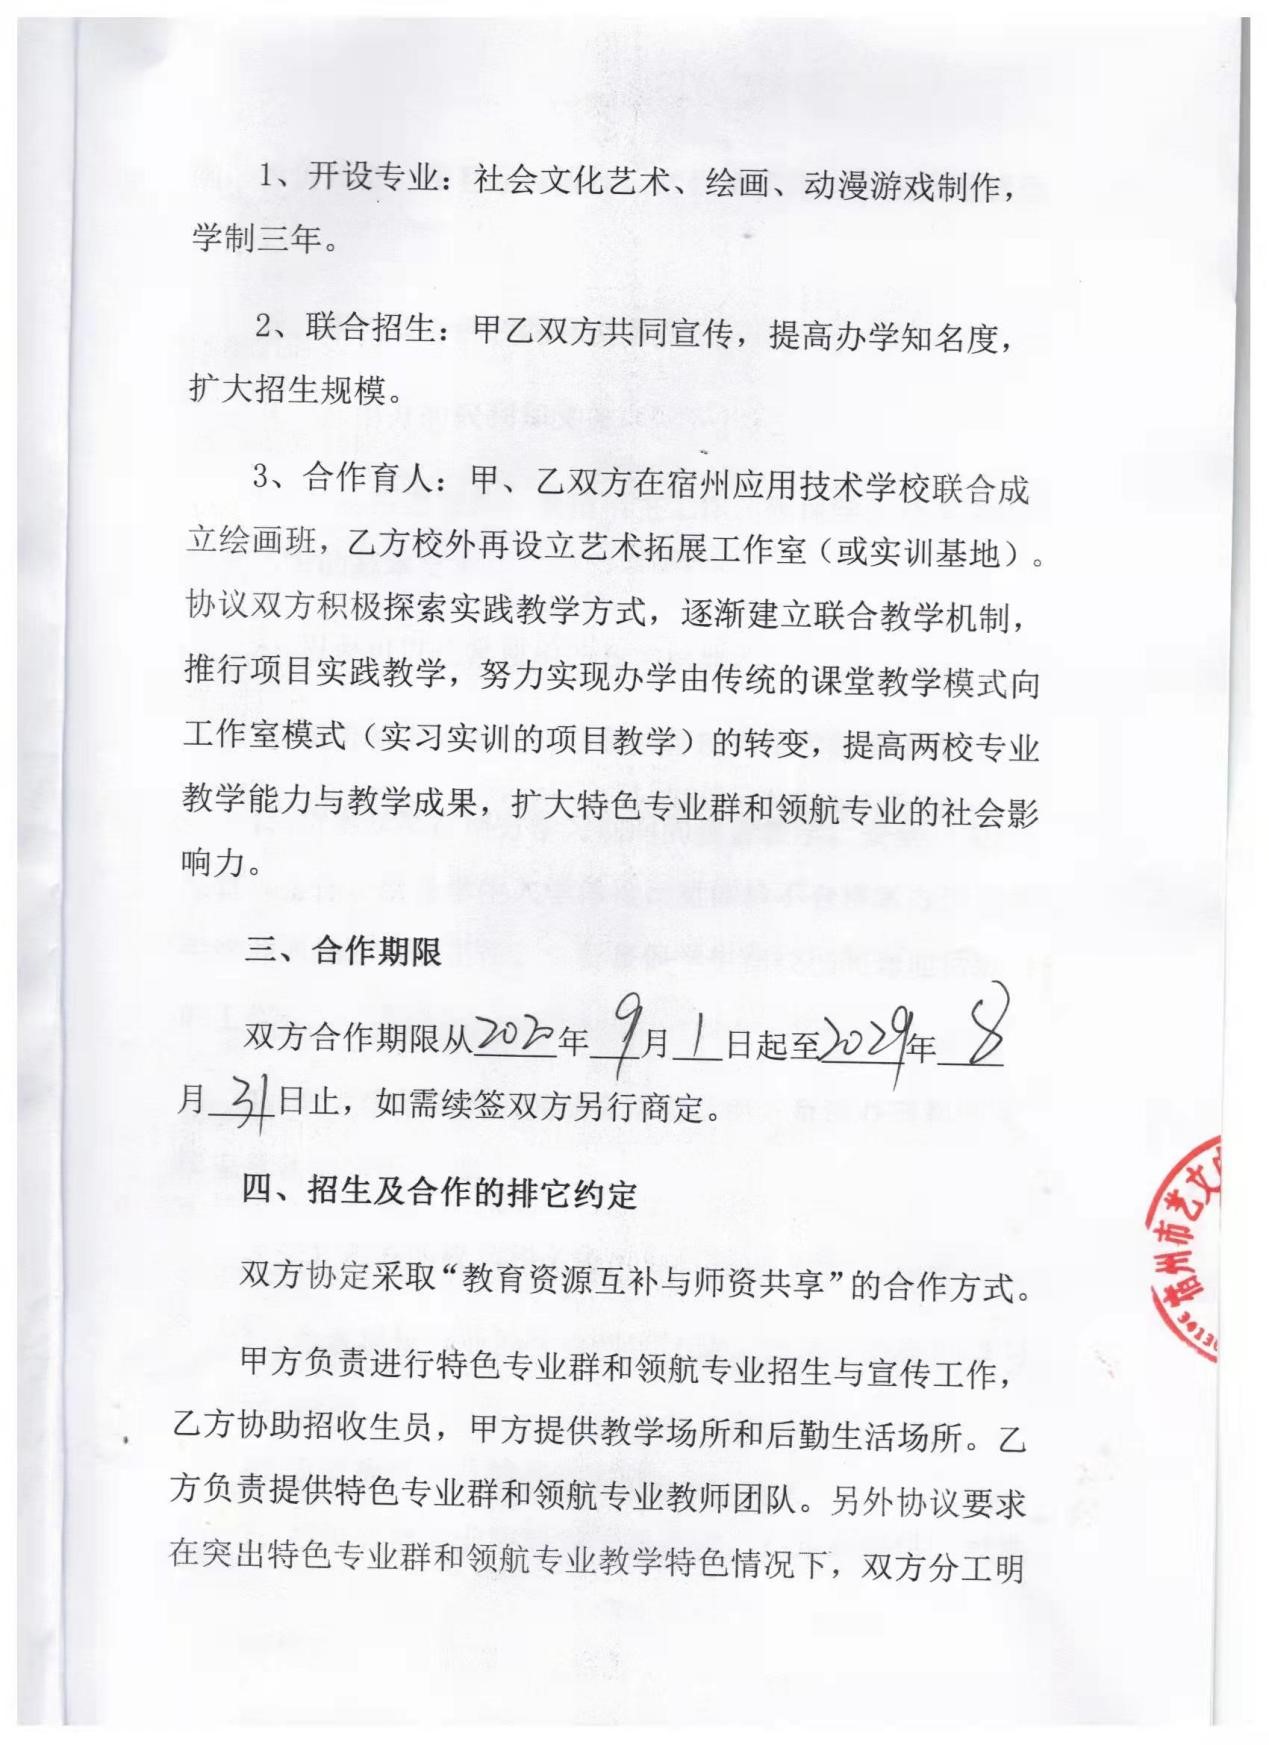 1、开设专业：社会文化艺术、绘画、动漫游戏制作，
学制三年。
2、联合招生：甲乙双方共同宣传，提高办学知名度，
扩大招生规模。
3、合作育人：甲、乙双方在宿州应用技术学校联合成
立绘画班，乙方校外再设立艺术拓展工作室（或实训基地）。
协议双方积极探索实践教学方式，逐渐建立联合教学机制，
推行项目实践教学，努力实现办学由传统的课堂教学模式向
工作室模式（实习实训的项目教学）的转变，提高两校专业
教学能力与教学成果，扩大特色专业群和领航专业的社会影
响力。
三、合作期限
双方合作期限从2020年9月1日起至2029年8
月31日止，如需续签双方另行商定。
四、招生及合作的排它约定
双方协定采取“教育资源互补与师资共享”的合作方式。
甲方负责进行特色专业群和领航专业招生与宣传工作，
乙方协助招收生员，甲方提供教学场所和后勤生活场所。乙
方负责提供特色专业群和领航专业教师团队。另外协议要求
在突出特色专业群和领航专业教学特色情况下，双方分工明
宿州市艺文
3413